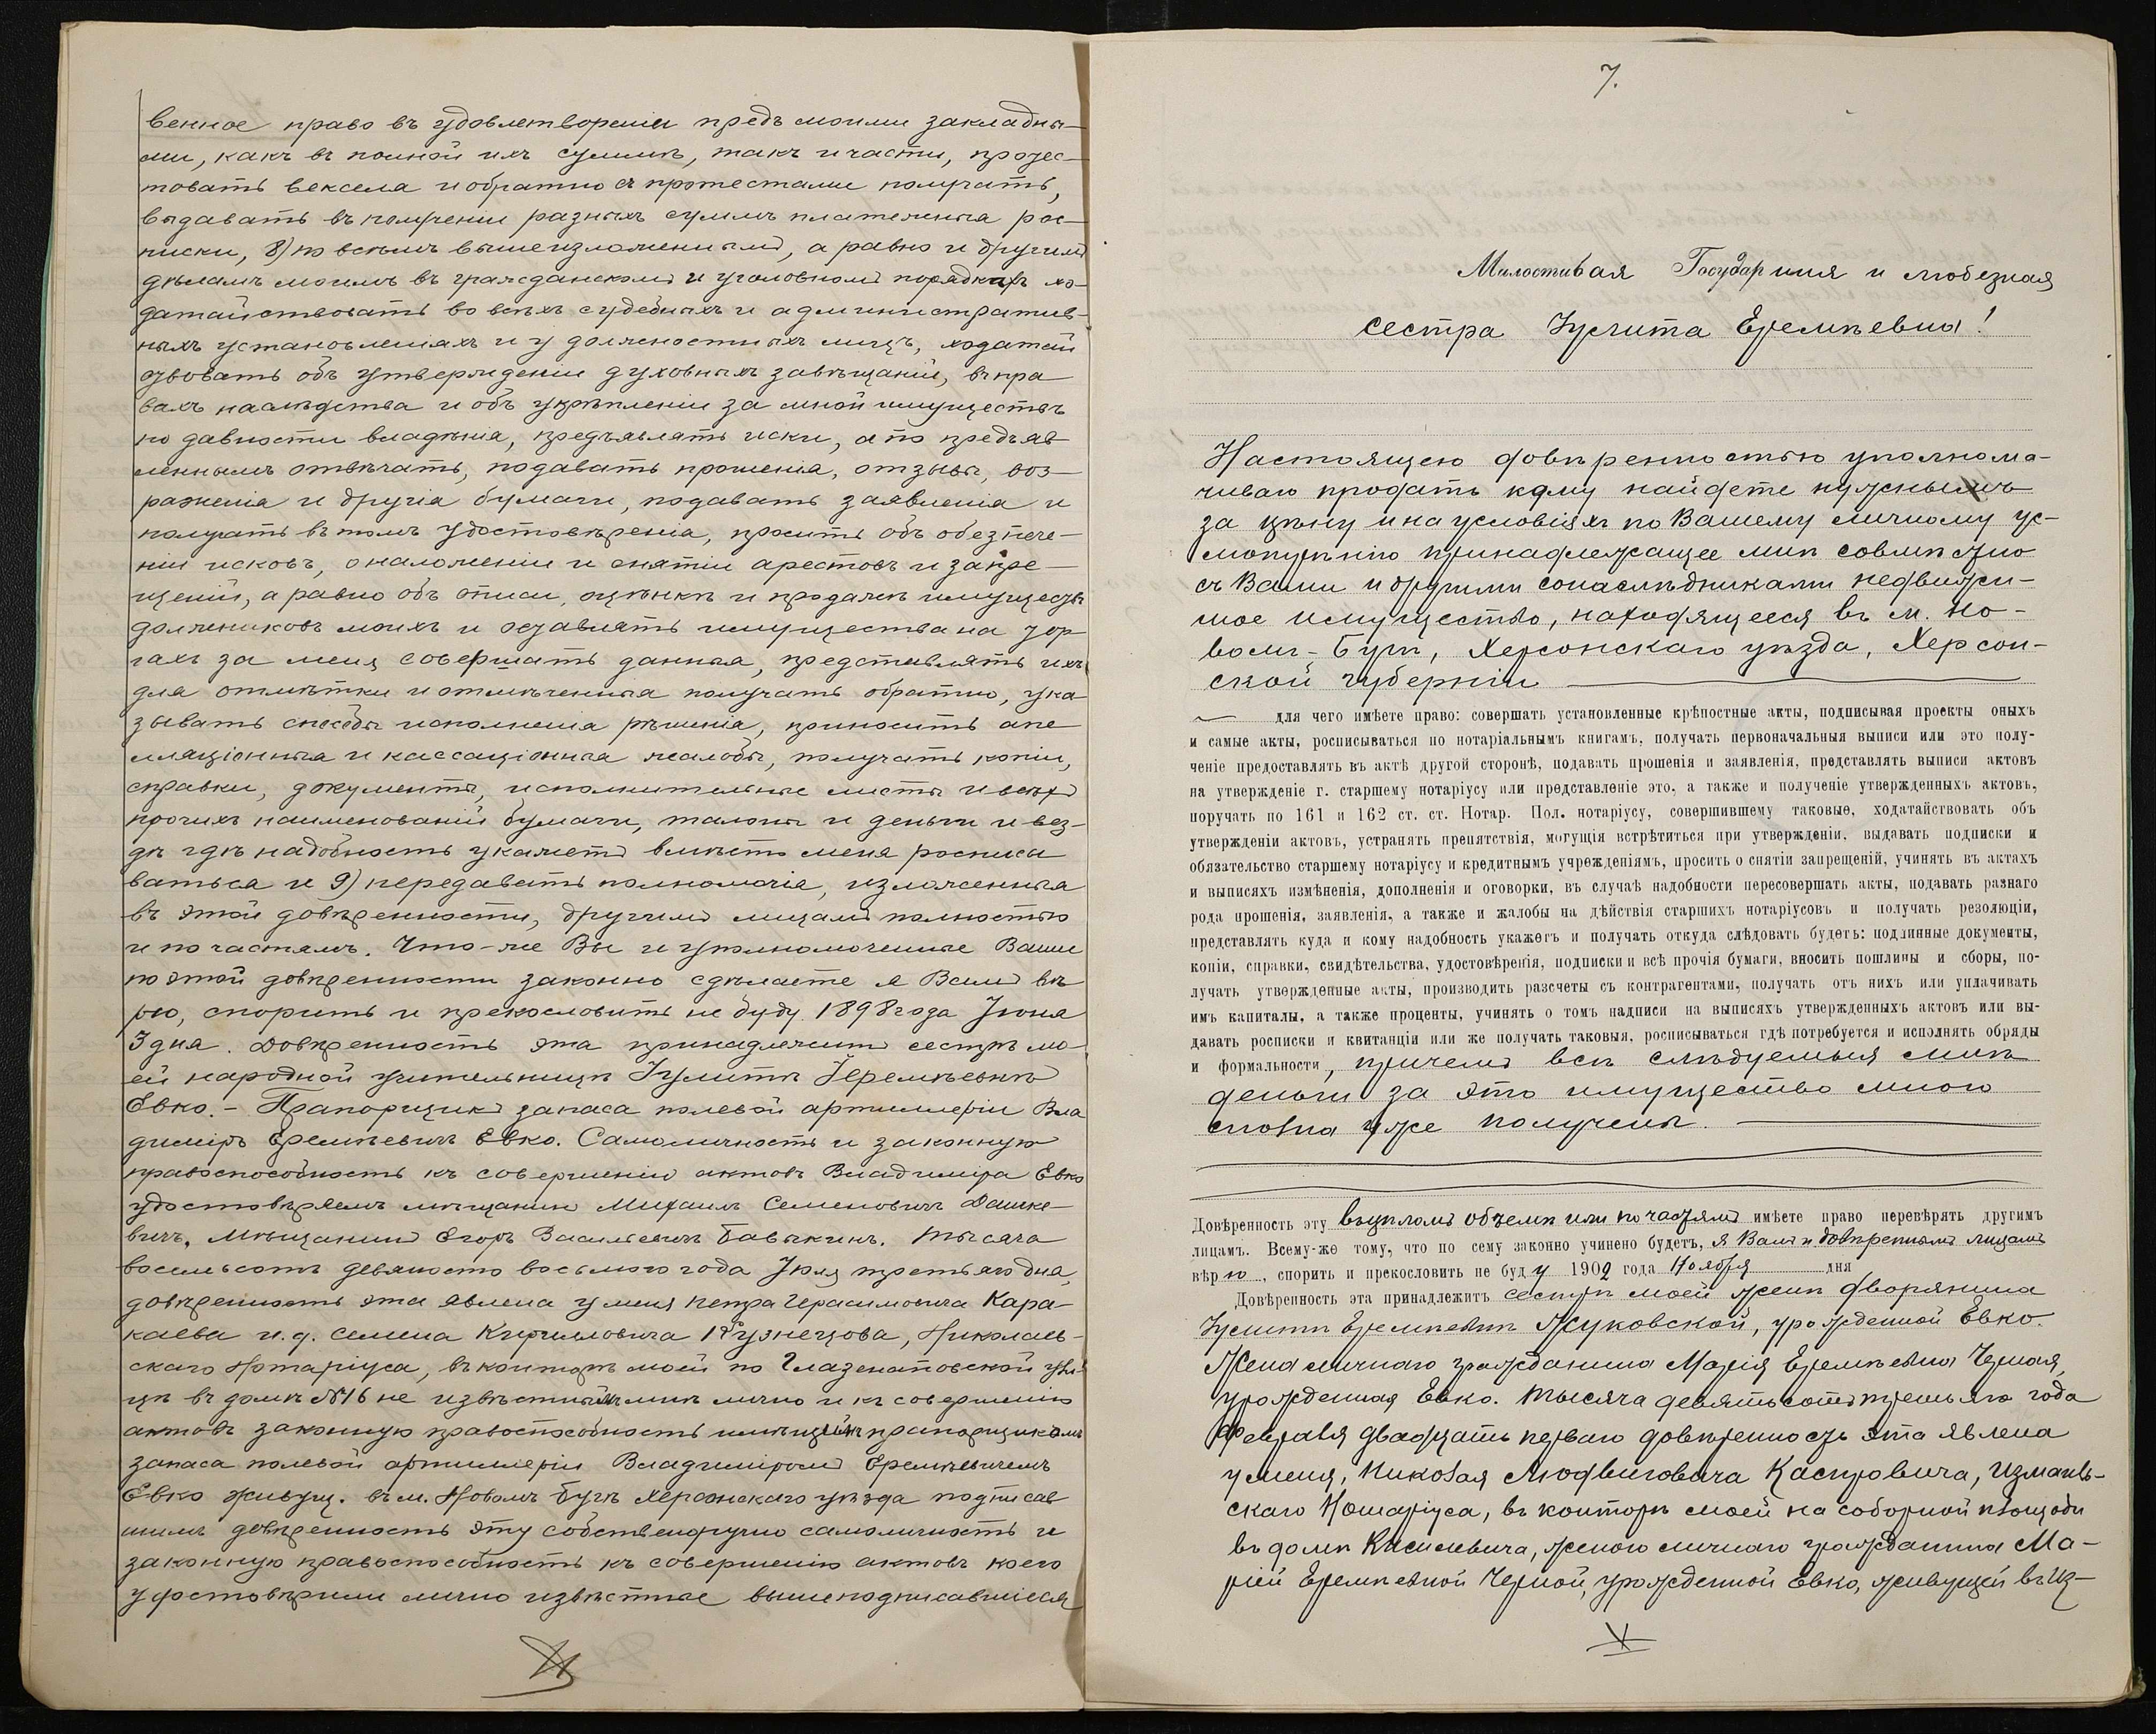 венное право въ удовлетвореніи предъ моими закладны-
ми, какъ въ полной ихъ суммѣ, такъ и части, протес-
товать векселя и обратно съ протестами получать,
выдавать въ полученіи разныхъ суммъ платежныя рос-
писки, 8) по всѣмъ вышеизложеннымъ, а равно и другимъ
дѣламъ моимъ въ гражданскомъ и уголовномъ порядкахъ хо-
датайствовать во всѣхъ судебныхъ и административ-
ныхъ установленіяхъ и у должностныхъ лицъ, ходатай
ствовать объ утвержденіи духовныхъ завѣщаній, въ пра
вахъ наслѣдства и объ укрѣпленіи за мной имуществъ
по давности владѣнія, предъявлять иски, а по предъяв-
леннымъ отвѣчать, подавать прошенія, отзывы, воз-
раженія и другія бумаги, подавать заявленія и
получать въ томъ удостовѣренія, просить объ обезпече-
ніи исковъ, о наложеніи и снятіи арестовъ и запре-
щеній, а равно объ описи, оцѣнкѣ и продажѣ имуществъ
должниковъ моихъ и оставлять имущества на тор-
гахъ за меня совершать данныя, представлять ихъ
для отмѣтки и отмѣченныя получать обратно, ука
зывать способы исполненія рѣшенія, приносить апе
лляціонныя и кассаціонныя жалобы, получать копіи,
справки, документы, исполнительные листы и всѣхъ
прочихъ наименованій бумаги, талоны и деньги и вез-
дѣ гдѣ надобность укажетъ вмѣсто меня росписы
ваться и 9) передавать полномочія, изложенныя
въ этой довѣренности, другимъ лицамъ полностью
и по частямъ. Что-же Вы и уполномоченные Вами
по этой довѣренности законно сдѣлаете я Вамъ вѣ
рю, спорить и прекословить не буду. 1898 года Іюня
3 дня. Довѣренность эта принадлежитъ сестрѣ мо-
ей народной учительницѣ Іулитѣ Іеремѣевнѣ
Евко. – Прапорщикъ запаса полевой артиллеріи Вла
диміръ Еремѣевичъ Евко. Самоличность и законную
правоспособность къ совершенію актовъ Владимира Евко
удостовѣряемъ мѣщанинъ Михаилъ Семеновичъ Дашке-
вичъ, Мѣщанинъ Егоръ Васильевичъ Бавыкинъ. Тысяча
восемьсотъ девяносто восьмого года Іюля третьяго дня,
довѣренность эта явлена у меня Петра Герасимовича Кара-
каева и. д. Семена Кирилловича Кузнецова, Николаев-
скаго Нотаріуса, въ конторѣ моей по Глазенаповской ули-
цѣ въ домѣ №16 не извѣстнымъ мнѣ лично и къ совершенію
актовъ законную правоспособность имѣющимъ прапорщикомъ
запаса полевой артиллеріи Владиміромъ Еремѣевичемъ
Евко живущ. въ м. Новомъ Бугѣ Херсонскаго уѣзда подписав
шимъ довѣренность эту собственоручно самоличность и
законную правоспособность къ совершенію актовъ коего
удостовѣрили лично извѣстные вышеподписавшіеся
7.
Милостивая Государыня и любезная
сестра Іулита Еремѣевна!
Настоящею довѣренностью уполнома-
чиваю продать кому найдете нужнымъ
за цѣну и на условіяхъ по Вашему личному ус-
мотрѣнію принадлежащее мнѣ совмѣстно
съ Вами и другими сонаслѣдниками недвижи-
мое имущество, находящееся въ м. Но-
вомъ-Бугѣ, Херсонскаго уѣзда, Херсон-
ской губерніи
для чего имѣете право: совершать установленные крѣпостные акты, подписывая проекты оныхъ
и самые акты, росписываться по нотаріальнымъ книгамъ, получать первоначальныя выписи или это полу-
ченіе предоставлять въ актѣ другой сторонѣ, подавать прошенія и заявленія, представлять выписи актовъ
на утвержденіе г. старшему нотаріусу или представленіе это, а также и полученіе утвержденныхъ актовъ,
поручать по 161 и 162 ст. ст. Нотар. Пол. нотаріусу, совершившему таковые, ходатайствовать объ
утвержденіи актовъ, устранять препятствія, могущія встрѣтиться при утвержденіи, выдавать подписки и
обязательство старшему нотаріусу и кредитнымъ учрежденіямъ, просить о снятіи запрещеній, учинять въ актахъ
и выписяхъ измѣненія, дополненія и оговорки, въ случаѣ надобности пересовершать акты, подавать разнаго
рода прошенія, заявленія, а также и жалобы на дѣйствія старшихъ нотаріусовъ и получать резолюціи,
представлять куда и кому надобность укажетъ и получать откуда слѣдовать будетъ: подлинные документы,
копіи, справки, свидѣтельства, удостовѣренія, подписки и всѣ прочія бумаги, вносить пошлины и сборы, по-
лучать утвержденные акты, производить разсчеты съ контрагентами, получать отъ нихъ или уплачивать
имъ капиталы, а также проценты, учинять о томъ надписи на выписяхъ утвержденныхъ актовъ или вы-
давать росписки и квитанціи или же получать таковыя, росписываться гдѣ потребуется и исполнять обряды
и формальности, причемъ всѣ слѣдуемыя мнѣ
деньги за это имущество мною
сполна уже получены.
Довѣренность эту въ цѣломъ объемѣ или по частямъ имѣете право перевѣрять другимъ
лицамъ. Всему-же тому, что по сему законно учинено будетъ, я Вамъ и довѣреннымъ лицамъ
вѣрю, спорить и прекословить не буду 1902 года Ноября дня
Довѣренность эта принадлежитъ сестрѣ моей женѣ дворянина
Іулитѣ Еремѣевнѣ Жуковской, урожденной Евко.
Жена личнаго гражданина Марія Еремѣевна Черная,
урожденная Евко. Тысяча девятьсотъ третьяго года
Февраля двадцать перваго довѣренность эта явлена
у меня, Николая Людвиговича Касперовича, Измаиль-
скаго Нотаріуса, въ конторѣ моей на соборной площади
въ домѣ Кисилевича, женою личнаго гражданина Ма-
ріей Еремѣевной Черной, урожденной Евко, живущей въ Из-